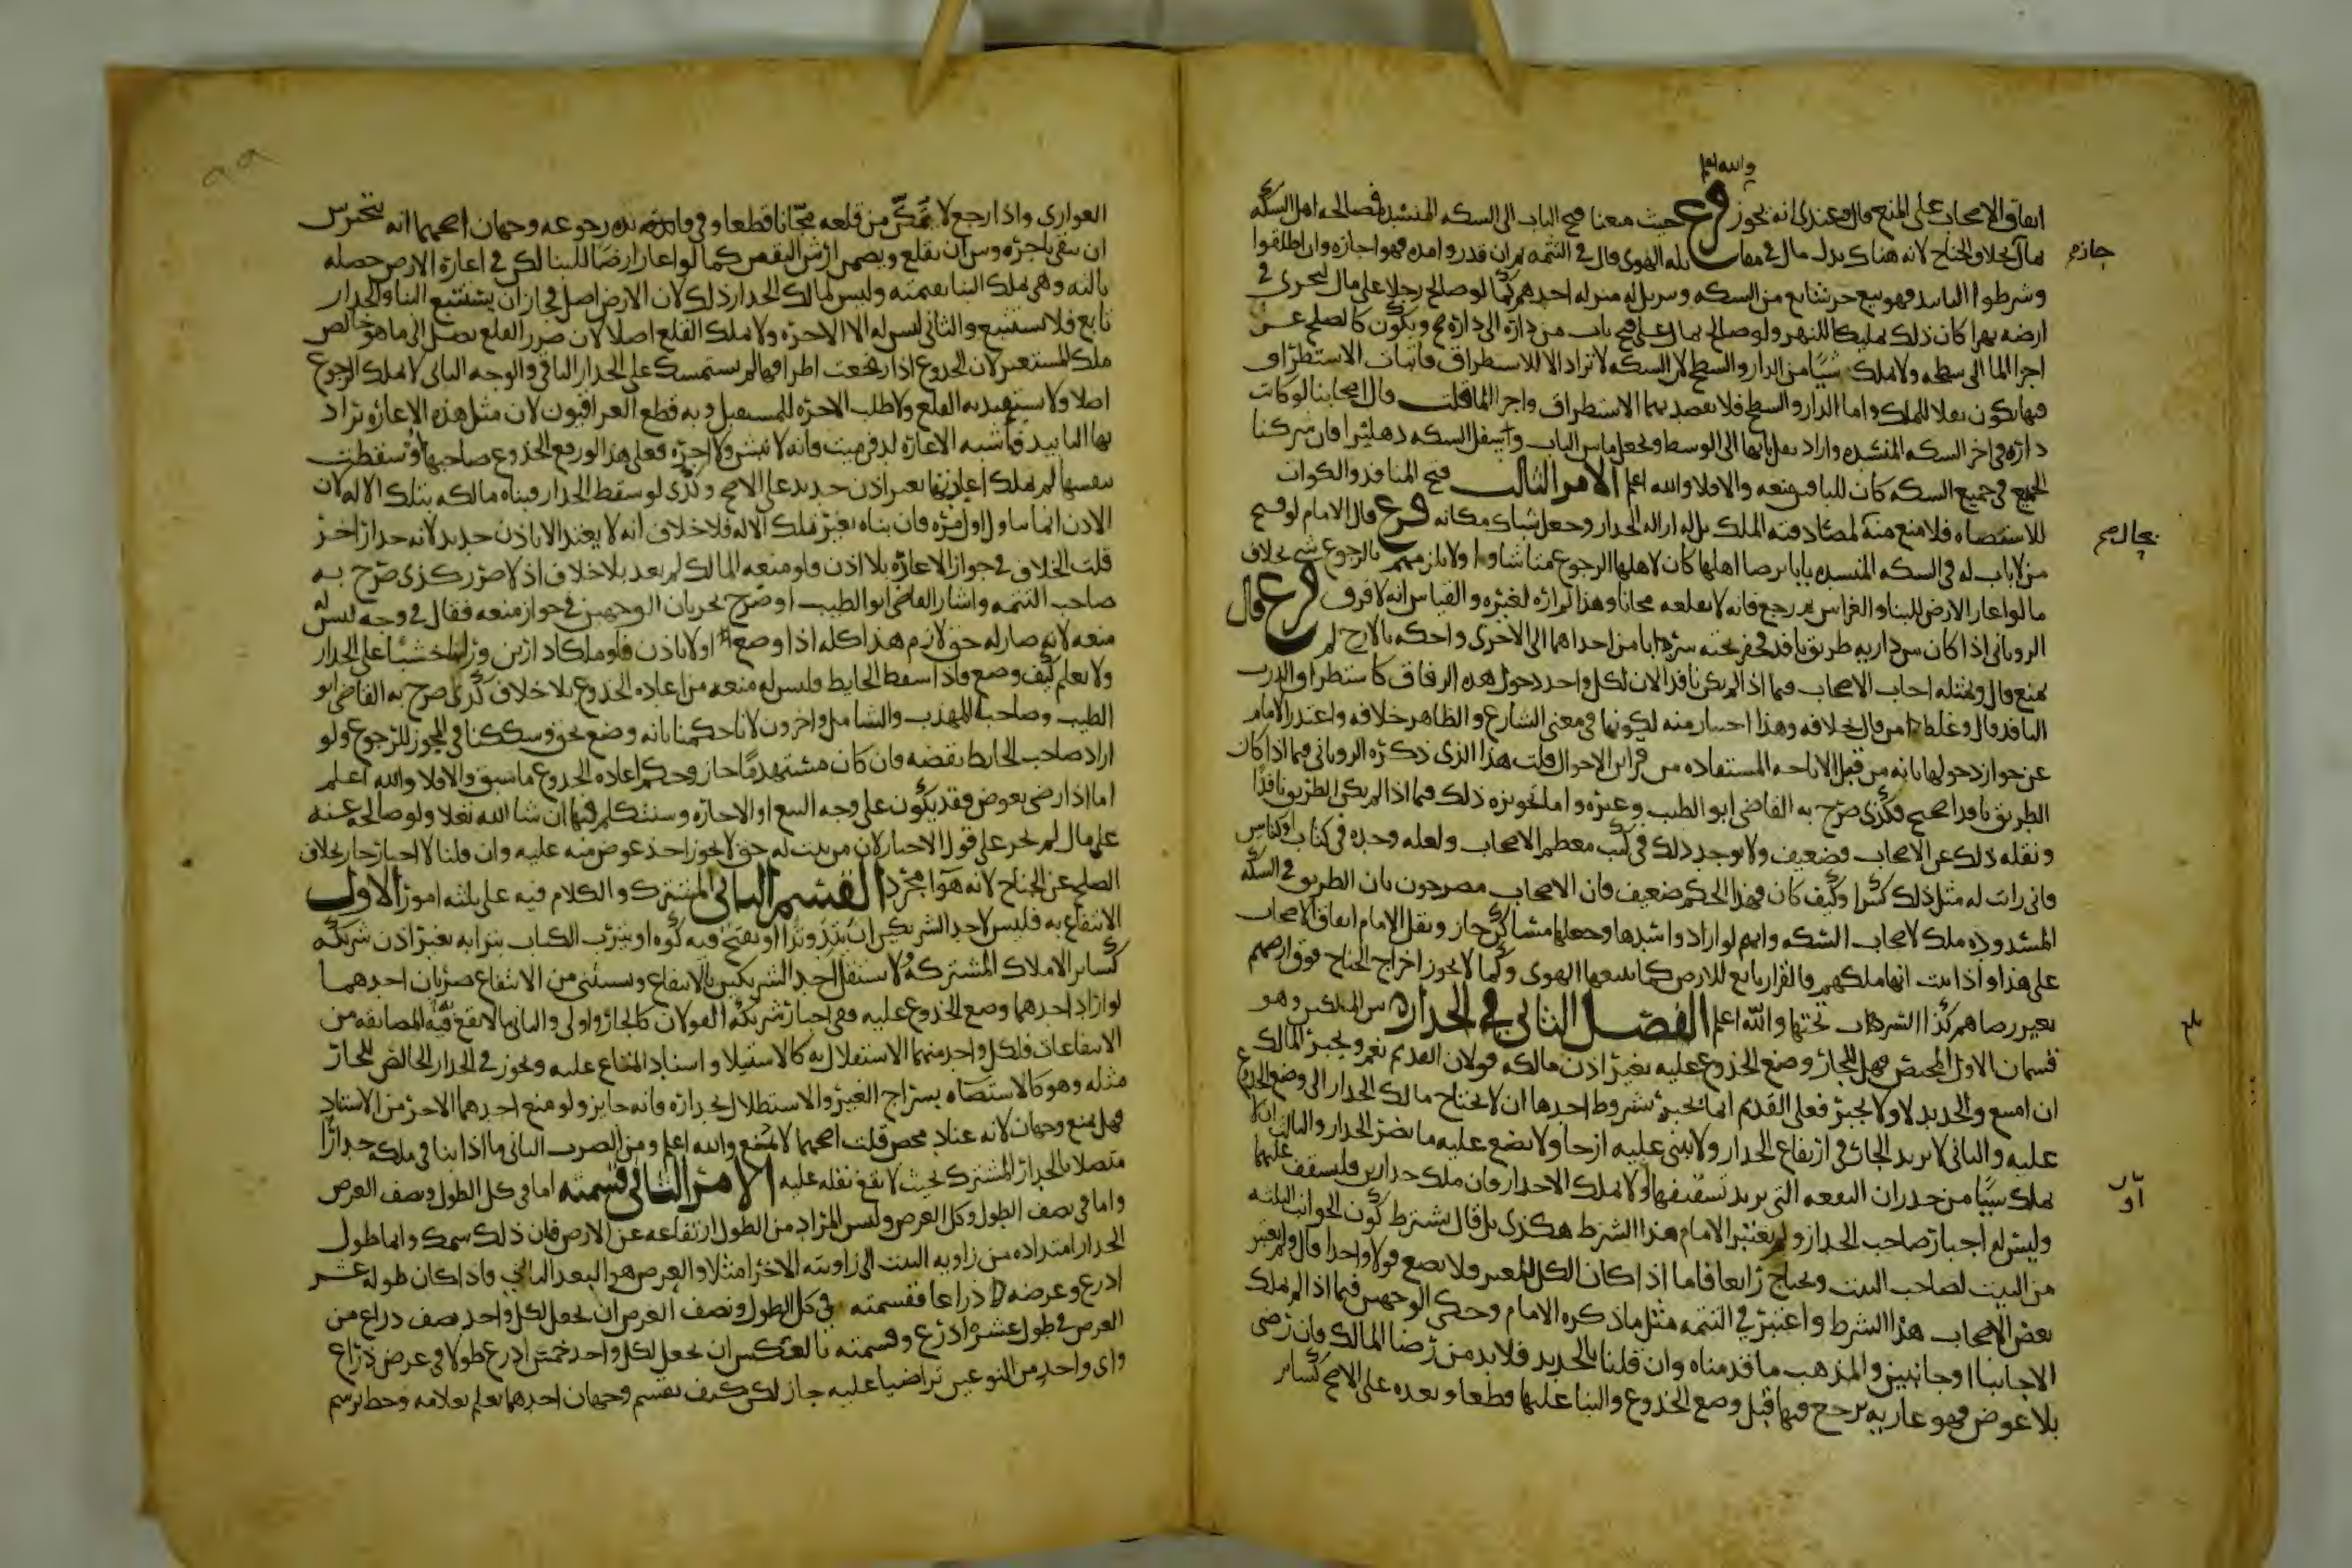 والله اعلم
اتفاق الاصحاب على المنع قال وعندي انه يجوز فرع حيث منعنا فتح الباب الى السكه المنسده فصالحه اهل السكه
بمال بخلاف الجناح لانه هناك بدل مال في مقابله الهوى قال في التتمه ثم ان قدروا مده فهو اجازه وان اطلقوا
جازه
وشرطوا التابيد فهو بيع جز شايع من السكه وسريل له منزله احدهم كما لو صالح رجلا على مال ليجري في
ارضه نهرا كان ذلك تمليكا للنهر ولو صالحه بمال على فتح باب من داره الى داره صح ويكون كالصلح عن
اجرا الما الى سطحه ولا ملك شيا من الدار والسطح لان السكه لا تراد الا للاستطراق فاثبات الاستطراق
فيها يكون نقلا للملك واما الدار والسطح فلا يقصد بهما الاستطراق واجرا الما قلت قال اصحابنا لو كانت
داره في اخر السكه المنسده واراد نقل بابها الى الوسط ويجعل ما بين الباب واسفل السكه دهليزا فان شركنا
الجميع في جميع السكه كان للباقين منعه والا فلا والله اعلم الامر الثالث فتح المنافذ والكوات
للاستضاه فلا منع منه لمصادفته الملك بل له ازاله الجدار وجعل شباك مكانه فرع قال الامام لو فتح
من لا باب له في السكه المنسده بابا برضا اهلها كان لاهلها الرجوع متى شاوا ولا يلزمهم بالرجوع شي بخلاف
ما لو اعار الارض للبنا والغراس ثم رجع فانه لا يقلعه مجانا وهذا لم اره لغيره والقياس انه لا فرق فرع قال
الروياني اذا كان بين داريه طريق نافذ فحفر تحته سردابا من احداهما الى الاخرى واحكمه بالازج لم
يمنع قال وبمثله اجاب الاصحاب فيما اذا لم يكن نافذا لان لكل واحد دخول هذه الزقاق كاستطراق الدرب
النافذ قال وغلط من قال بخلافه وهذا اختيار منه لكونها في معنى الشارع والظاهر خلافه واعتذر الامام
عن جواز دخولها بانه من قبيل الاباحه المستفاده من قراين الاحوال قلت هذا الذي ذكره الروياني فيما اذا كان
الطريق نافذا صحيح وكذى صرح به القاضي ابو الطيب وغيره واما تجويزه ذلك فيما اذا لم يكن الطريق نافذا
ونقله ذلك عن الاصحاب فضعيف ولا يوجد ذلك في كتب معظم الاصحاب ولعله وجده في كتاب او كتابين
فاني رايت له مثل ذلك كثيرا وكيف كان فهذا الحكم ضعيف فان الاصحاب مصرحون بان الطريق في السكه
المسدوده ملك لاصحاب السكه وانهم لو ارادوا سدها وجعلها مساكن جاز ونقل الامام اتفاق الاصحاب
على هذا واذا ثبت انها ملكهم فالقرار تابع للارض كما يتبعها الهوى وكما لا يجوز اخراج الجناح فوق ارضهم
بغير رضاهم كذا السرداب تحتها والله اعلم الفصل الثاني في الجدار بين الملكين وهو
قسمان الاول المختص فهل للجار وضع الجذوع عليه بغير اذن مالكه قولان القديم نعم ويجبر المالك
ان امتنع والجديد لا ولا يجبر فعلى القديم انما يجبر بشروط احدها ان لا يحتاج مالك الجدار الى وضع الجذوع
عليه والثاني لا يزيد الجار في ارتفاع الجدار ولا يبني عليه ازجا ولا يضع عليه ما يضر الجدار والثالث ان لا
يملك شيا من جدران البقعه التي يريد تسقيفها او لا يملك الا جدارا فان ملك جدارين فليسقف عليهما
وليس له اجبار صاحب الجدار ولم يعتبر الامام هذا الشرط هكذى بل قال يشترط كون الجوانب الثلثه
من البيت لصاحب البيت ويحتاج رابعا فاما اذا كان الكل للغير فلا يضع قولا واحدا قال ولم يعتبر
بعض الاصحاب هذا الشرط واعتبر في التتمه مثل ما ذكره الامام وحكى الوجهين فيما اذا لم يملك
الا جانبا او جانبين والمذهب ما قدمناه وان قلنا بالجديد فلا بد من رضا المالك فان رضي
بلا عوض فهو عاريه يرجع فيها قبل وضع الجذوع والبنا عليها قطعا وبعده على الاصح كساير
العواري واذا رجع لا يتمكن من قلعه مجانا قطعا وفي فايده رجوعه وجهان اصحهما انه يتخير بين
ان يبقى باجره وبين ان يقلع ويضمن ارش النقص كما لو اعار ارضا للبنا لكن في اعارة الارض خصله
ثالثه وهي تملك البنا بقيمته وليس لمالك الجدار ذلك لان الارض اصل فجاز ان يستتبع البنا والجدار
تابع فلا يستتبع والثاني ليس له الا الاجره ولا يملك القلع اصلا لان ضرر القلع يصل الى ما هو خالص
ملك المستعير لان الجذوع اذا رفعت اطرافها لم يستمسك على الجدار الباقي والوجه الثاني لا يملك الرجوع
اصلا ولا يستفيد به القلع ولا طلب الاجره للمستقبل وبه قطع العراقيون لان مثل هذه الاعاره تراد
بها التابيد فاشبه الاعاره لدفن ميت فانه لا ينبش ولا اجره فعلى هذا لو رفع الجذوع صاحبها او سقطت
بنفسها لم يملك اعادتها بغير اذن جديد على الاصح وكذى لو سقط الجدار فبناه مالكه بتلك الاله لان
الاذن انما يتناول اول مره فان بناه بغير تلك الاله فلا خلاف انه لا يعيد الا باذن جديد لانه جدار اخر
قلت الخلاف في جواز الاعاره بلا اذن فلو منعه المالك لم يعد بلا خلاف اذ لا ضرر كذى صرح به
صاحب التتمه واشار القاضي ابو الطيب او صرح بجريان الوجهين في جواز منعه فقال في وجه ليس له
منعه لانه صار له حق لازم هذا كله اذا وضع اولا باذن فلو ملكا دارين ورايا خشبا على الجدار
ولا يعلم كيف وضع فاذا سقط الحايط فليس له منعه من اعاده الجذوع بلا خلاف كذى صرح به القاضي ابو
الطيب وصاحبا المهذب والشامل واخرون لانا حكمنا بانه وضع بحق وشككنا في المجوز للرجوع ولو
اراد صاحب الحايط نقضه فان كان مستهدما جاز وحكم اعاده الجذوع ما سبق والا فلا والله اعلم
اما اذا رضي بعوض فقد يكون على وجه البيع او الاجاره وسنتكلم فيها ان شا الله تعالى ولو صالحه عنه
على مال لم يجز على قول الاجبار لان من ثبت له حق لا يجوز اخذ عوض منه عليه وان قلنا لا اجبار جاز بخلاف
الصلح عن الجناح لانه هوا مجرد القسم الثاني المشترك والكلام فيه على ثلثه امور الاول
الانتفاع به فليس لاحد الشريكين ان يتد وتدا او يفتح فيه كوه او يترب الكتاب بترابه بغير اذن شريكه
كساير الاملاك المشتركه لا يستقل احد الشريكين بالانتفاع ويستثنى من الانتفاع ضربان احدهما
لو اراد احدهما وضع الجذوع عليه ففي اجبار شريكه القولان كالجار واولى والثاني ما لا تقع فيه المضايقه من
الانتفاعات فلكل واحد منهما الاستقلال به كالاستيلا واسناد المتاع عليه ويجوز في الجدار الخالص للجار
مثله وهو كالاستضاه بسراج الغير والاستظلال بجداره فانه جايز ولو منع احدهما الاخر من الاستناد
فهل يمنع وجهان لانه عناد محض قلت اصحهما لا يمنع والله اعلم ومن الضرب الثاني ما اذا بنا في ملكه جدارا
متصلا بالجدار المشترك بحيث لا يقع ثقله عليه الامر الثاني قسمته اما في كل الطول ونصف العرض
واما في نصف الطول وكل العرض وليس المراد من الطول ارتفاعه عن الارض فان ذلك سمك وانما طول
الجدار امتداده من زاويه البيت الى زاويته الاخرى مثلا والعرض هو البعد الثاني فاذا كان طوله عشر
اذرع وعرضه ذراعا فقسمته في كل الطول ونصف العرض ان يجعل لكل واحد نصف ذراع من
العرض في طول عشره اذرع وقسمته بالعكس ان يجعل لكل واحد خمس اذرع طولا في عرض ذراع
واي واحد من النوعين تراضيا عليه جاز لكن كيف يقسم وجهان احدهما يعلم بعلامه وخط يرسم